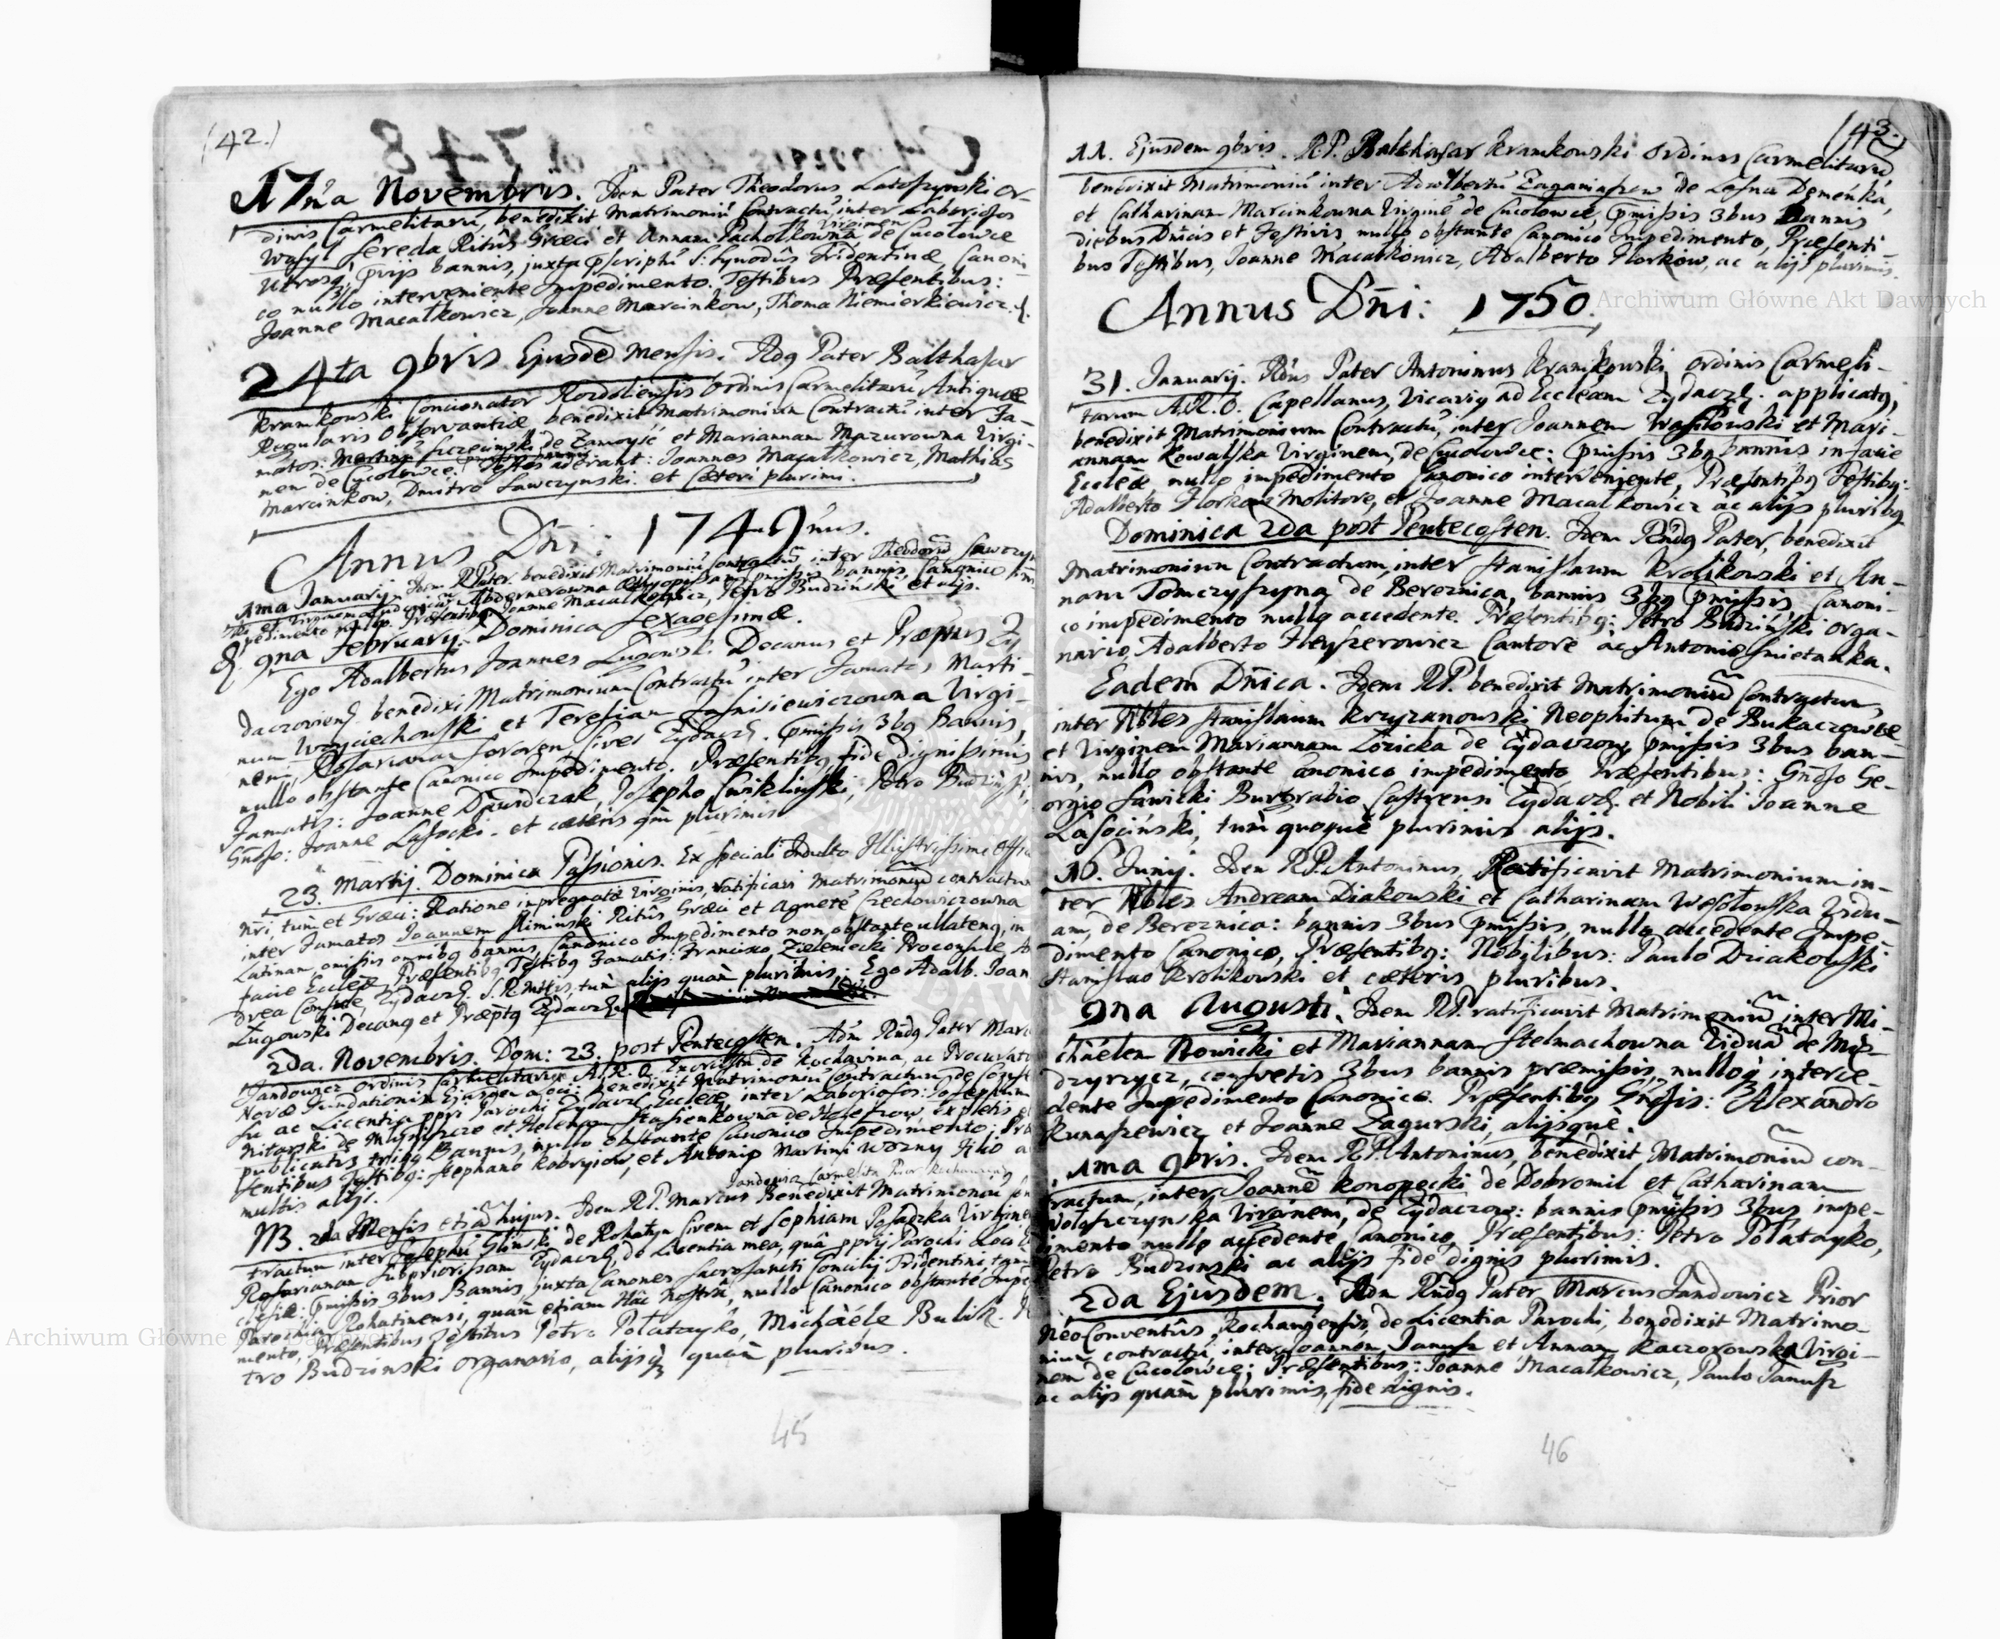 (42.)
17ma Novembris. Idem Pater Theodorus Latoszynski or-
dinis Carmelitarū, benedixit Matrimoniū Contractū, inter Laboriosos
Wasyl Sereda Ritûs Græci et Annam Pacholkowna Virginem de Cucolowce
Utrosq, prijs bannis, juxta pscriptū S: Synodûs Tridentinæ, Canoni-
co nullo interveniente Impedimento. Testibus Præsentibus:
Joanne Macałkowicz, Joanne Marcinkow, Thoma Niemierkiewicz.
24ta 9bris Ejusdē Mensis. Rdg Pater Balthasar
Kramkowski Concionator Rozdoliensis Ordinis Carmelitarū Antiquæ
Regularis Observantiæ benedixit Matrimonium Contractū inter Fa-
matos: Martinū Szczeinski de Zamoyść et Mariannam Mazurowna Virgi-
nem de Cucolowce. Testes aderant: Joannes Macałkowicz, Mathias
Marcinkow, Dmitro Sawczynski. et Cæteri plurimi.
Annus Dni: 1749nus.
1ma Januarij. Idem R Pater benedixit Matrimoniū Contractū inter Theodorū Sawczyn
Joanne Macałkowicz, Petro Budzinski et alijs.
9na February. Dominica Sexagesimæ.
Ego Adalbertus Joannes Ługowski Decanus et Præptus Zy
daczovien benedixi Matrimonium Contractū inter Famatos Marti-
num Woyciechowski et Teresiam Jasnisiewiczowna Virgi-
nem, Rosarianam Sororem, Cives Zydacz. pmissis 3bq Bannis,
nullo obstante Canonico Impedimento. Præsentibq fide Dignissimis
Famatis: Joanne Dawidczak, Josepho Cwiklinski, Petro Budzinski,
Gnoso: Joanne Lasocki. et cæteris qm plurimis
23. Martij. Dominica Passionis. Ex speciali Indulto Illustrissimi Offici
nri, tum et Græci: Ratione impregnatæ Virginis, ratificavi Matrimoniū contractum
inter Famatos Joannem Riminski Ritûs Græci et Agnete Czechowiczowna
Latinam, omissis omnibq bannis, Canonico Impedimento non obstante ullateng, in
facie Ecclæ, Præsentibq Testibq Famatis: Francisco Zieleniecki Proconsule
drea Consule, Zydacz. tum alijs quam plurimis. Ego Adalb. Joan
Ługowski Decang et Præptg Zydacz.
2da. Novembris. Dom: 23. post Pentecosten. Adm Rndg Pater Marc
Jandowicz ordinis Carmelitarum A.R.O. de Kochavina, ac Procurato
Novæ Fundationis Ejusdem Loci: benedixit Matrimoniū Contractum de Consen
su ac Licentia ppri Parochi Zydacz Ecclæ, inter Laboriosos: Josephum
Nitarski de Mlyniszcze et Helenam Stasienkowna de Holeszow, Expletis et
publicatis tribq Bannis, nullo obstante Canonico Impedimento; Præ
sentibus Testibq: Stephano Kobryiow, et Antonio Martini Wozny Filio ac
multis alijs.
NB. 2da Mensis etiā hujus. Idem R.P. Marcus Jandowicz Carmelita Prior Kochavinens Benedixit Matrimoniū con
tractum inter Josephū Glinski de Rohatyn Civem et Sophiam Posadzka Virgine
Rosarianam Subpriorissam Zydacz, de Licentia mea, quâ pprij Parochi Loci
clesiæ: pmissis 3bus Bannis juxta Canones Sacrosancti Concilij Tridentini, tam
Parochia Rohatinensi, quam etiam Hâc Nostrâ, nullo Canonico obstante Impe
mento, Præsentibus Testibus Petro Połatayko, Michaële Bulik.
tro Budzinski organario, alijsq quam pluribus.
45
(43.)
11. Ejusdem 9bris. R.P. Balthasar Kramkowski Ordinis Carmelitarū
benedixit Matrimoniū inter Adalbertū Zaganiaszew de Lesna Demenka,
et Catharinam Marcinkowna Virginē de Cucolowce, pmissis 3bus Bannis
diebus Dnicis et Festivis, nullo obstante Canonico Impedimento, Præsenti-
bus Testibus, Joanne Macałkowicz, Adalberto Florkow, ac alijs plurimis.
Annus Dni: 1750.
31. Januarij. Rdus Pater Antoninus Kramkowski ordinis Carmeli-
tarum A.R.O. Capellanus, Vicariq ad Eccleam Zydacz. applicatq,
benedixit Matrimonium Contractū, inter Joannem Wasilowski et Mari-
annam Kowalska Virginem, de Cucolowce: pmissis 3bq bannis in facie
Eccleæ nullo impedimento Canonico interveniente, Præsentibq Testibq:
Adalberto Florkow Molitore, et Joanne Macalkowicz ac alijs pluribq
Dominica 2da post Pentecosten. Idem Rndq Pater, benedixit
Matrimonium Contractum, inter Stanislaum Krolikowski et An-
nam Tomczyszyna de Bereznica, bannis 3bq pmissis, Canoni-
co impedimento nullo accedente. Præsentibq: Petro Budzinski orga-
nario, Adalberto Fleyszerowicz Cantore ac Antonio Smietanka.
Eadem Dnica. Idem R.P. benedixit Matrimoniū Contractum,
inter Nbles Stanislaum Krzyzanowski Neophitum de Bukaczowce
et Virginem Mariannam Lozicka de Zydaczow, pmissis 3bus ban-
nis, nullo obstante canonico impedimento, Præsentibus: Gnoso Ge-
orgio Sawicki Burgrabio Castrensi Zydacz. et Nobili Joanne
Lasocinski, tum quoque plurimis alijs.
16. Junij. Idem R.P. Antoninus, Ratificavit Matrimonium in-
ter Nbles Andream Dziakowski et Catharinam Wesołowska Vidu-
am, de Bereznica: bannis 3bus pmissis, nullo accedente Impe-
dimento Canonico, Præsentibq: Nobilibus: Paulo Dziakowski
Stanislao Krolikowski et cæteris pluribus.
9na Augusti. Idem R.P. ratificavit Matrimoniū inter Mi-
chaëlem Nowicki et Mariannam Stelmachowna Viduā de Mię-
dzyrzycz, consvetis 3bus bannis præmissis, nulloq interce-
dente Impedimento Canonico. Præsentibq Gnosis: Alexandro
Kunaszewicz et Joanne Zagurski, alijsque.
1ma 9bris. Idem R.P. Antoninus, benedixit Matrimoniū con-
tractum, inter Joannē Konopecki de Dobromil et Catharinam
Wołoszczynska Virginem, de Zydaczow: bannis pmissis 3bus, impe-
dimento nullo accedente Canonico, Præsentibus: Petro Połatayko,
Petro Budzinski ac alijs fide dignis plurimis.
2da Ejusdem. Adm Rndq Pater Marcus Jandowicz Prior
Neo Conventûs Kochavensis, de Licentia Parochi, benedixit Matrimo-
nium contractū inter Joannem Janusz et Annam Kaczorowska Virgi-
nem de Cucolowce; Præsentibus: Joanne Macałkowicz, Paulo Janusz
ac alijs quam plurimis, fide dignis.
46
Archiwum Główne Akt Dawnych
Archiwum Główne Akt Dawnych